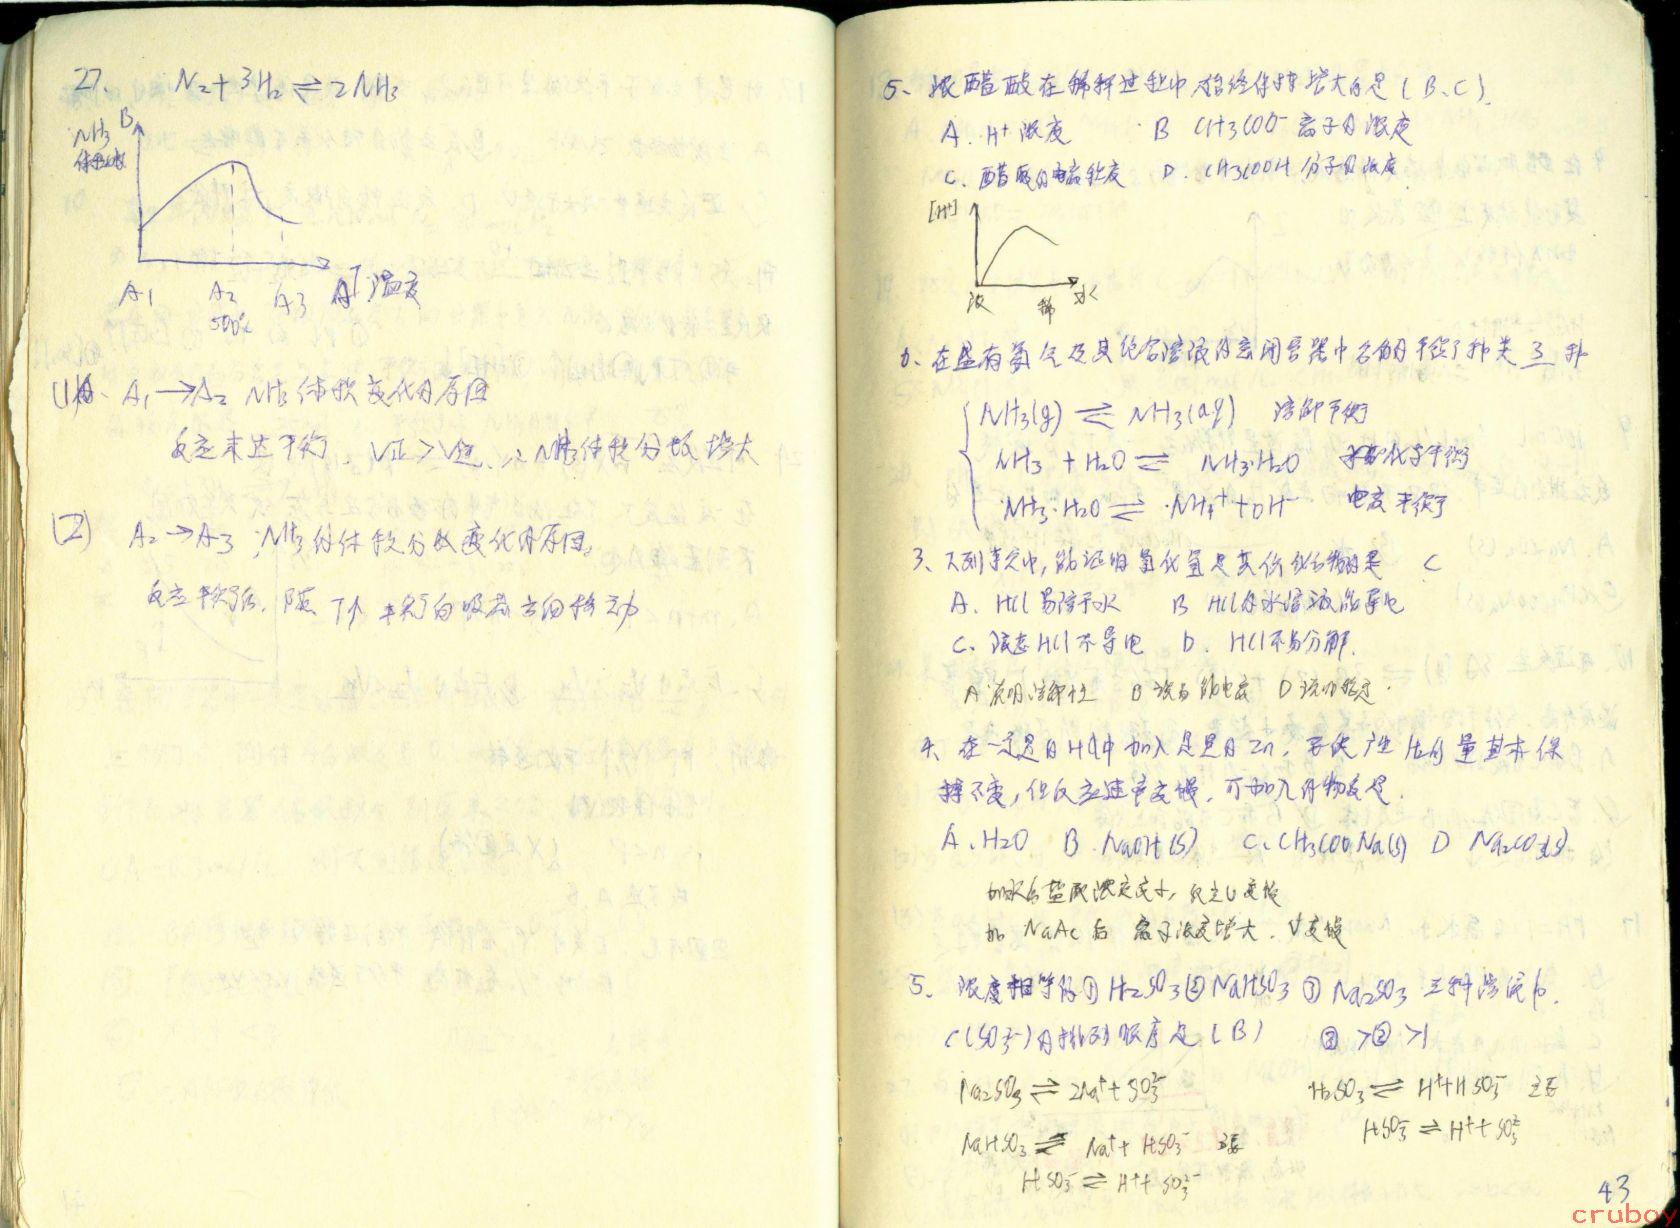 27、 N2 + 3H2 ⇌ 2NH3
NH3 B
体积分数
A1 A2 A3 A T 温度
500℃
(1) A1→A2 NH3体积变化的原因
反应未达平衡，V正>V逆，∴NH3体积分数增大
(2) A2→A3 NH3的体积分数变化的原因。
反应平衡后，随T↑ 平衡向吸热方向移动
5、浓醋酸在稀释过程中始终保持增大的是（B、C）
A. H+浓度 B CH3COO- 离子的浓度
C. 醋酸的电离程度 D. CH3COOH 分子的浓度
[H+]
浓 稀 水
6、在盛有氨气及其饱合溶液的密闭容器中存在的平衡种类 3 种
NH3(g) ⇌ NH3(aq) 溶解平衡
NH3 + H2O ⇌ NH3·H2O 化学平衡
NH3·H2O ⇌ NH4+ + OH- 电离平衡
3、下列事实中，能证明氯化氢是共价化合物的是 C
A. HCl 易溶于水 B HCl的水溶液能导电
C. 液态HCl不导电 D. HCl不易分解.
A 说明溶解性 B 说明能电离 D 说明稳定.
4. 在一定量的HCl中加入足量的Zn. 要使产生H2的量基本保
持不变，但反应速率变慢，可加入的物质是.
A. H2O B. NaOH(s) C. CH3COONa(s) D Na2CO3(s)
加水后盐酸浓度变小，反应V变慢
加 NaAc 后 离子浓度增大. V变慢
5. 浓度相等的① H2SO3 ② NaHSO3 ③ Na2SO3 三种溶液中.
C(SO3²⁻)的排列顺序是（B） ③>②>1
Na2SO3 ⇌ 2Na+ + SO3²⁻ H2SO3 ⇌ H+ + HSO3⁻ 主要
HSO3⁻ ⇌ H+ + SO3²⁻
NaHSO3 ⇌ Na+ + HSO3⁻ 主要
HSO3⁻ ⇌ H+ + SO3²⁻
43
cruboy